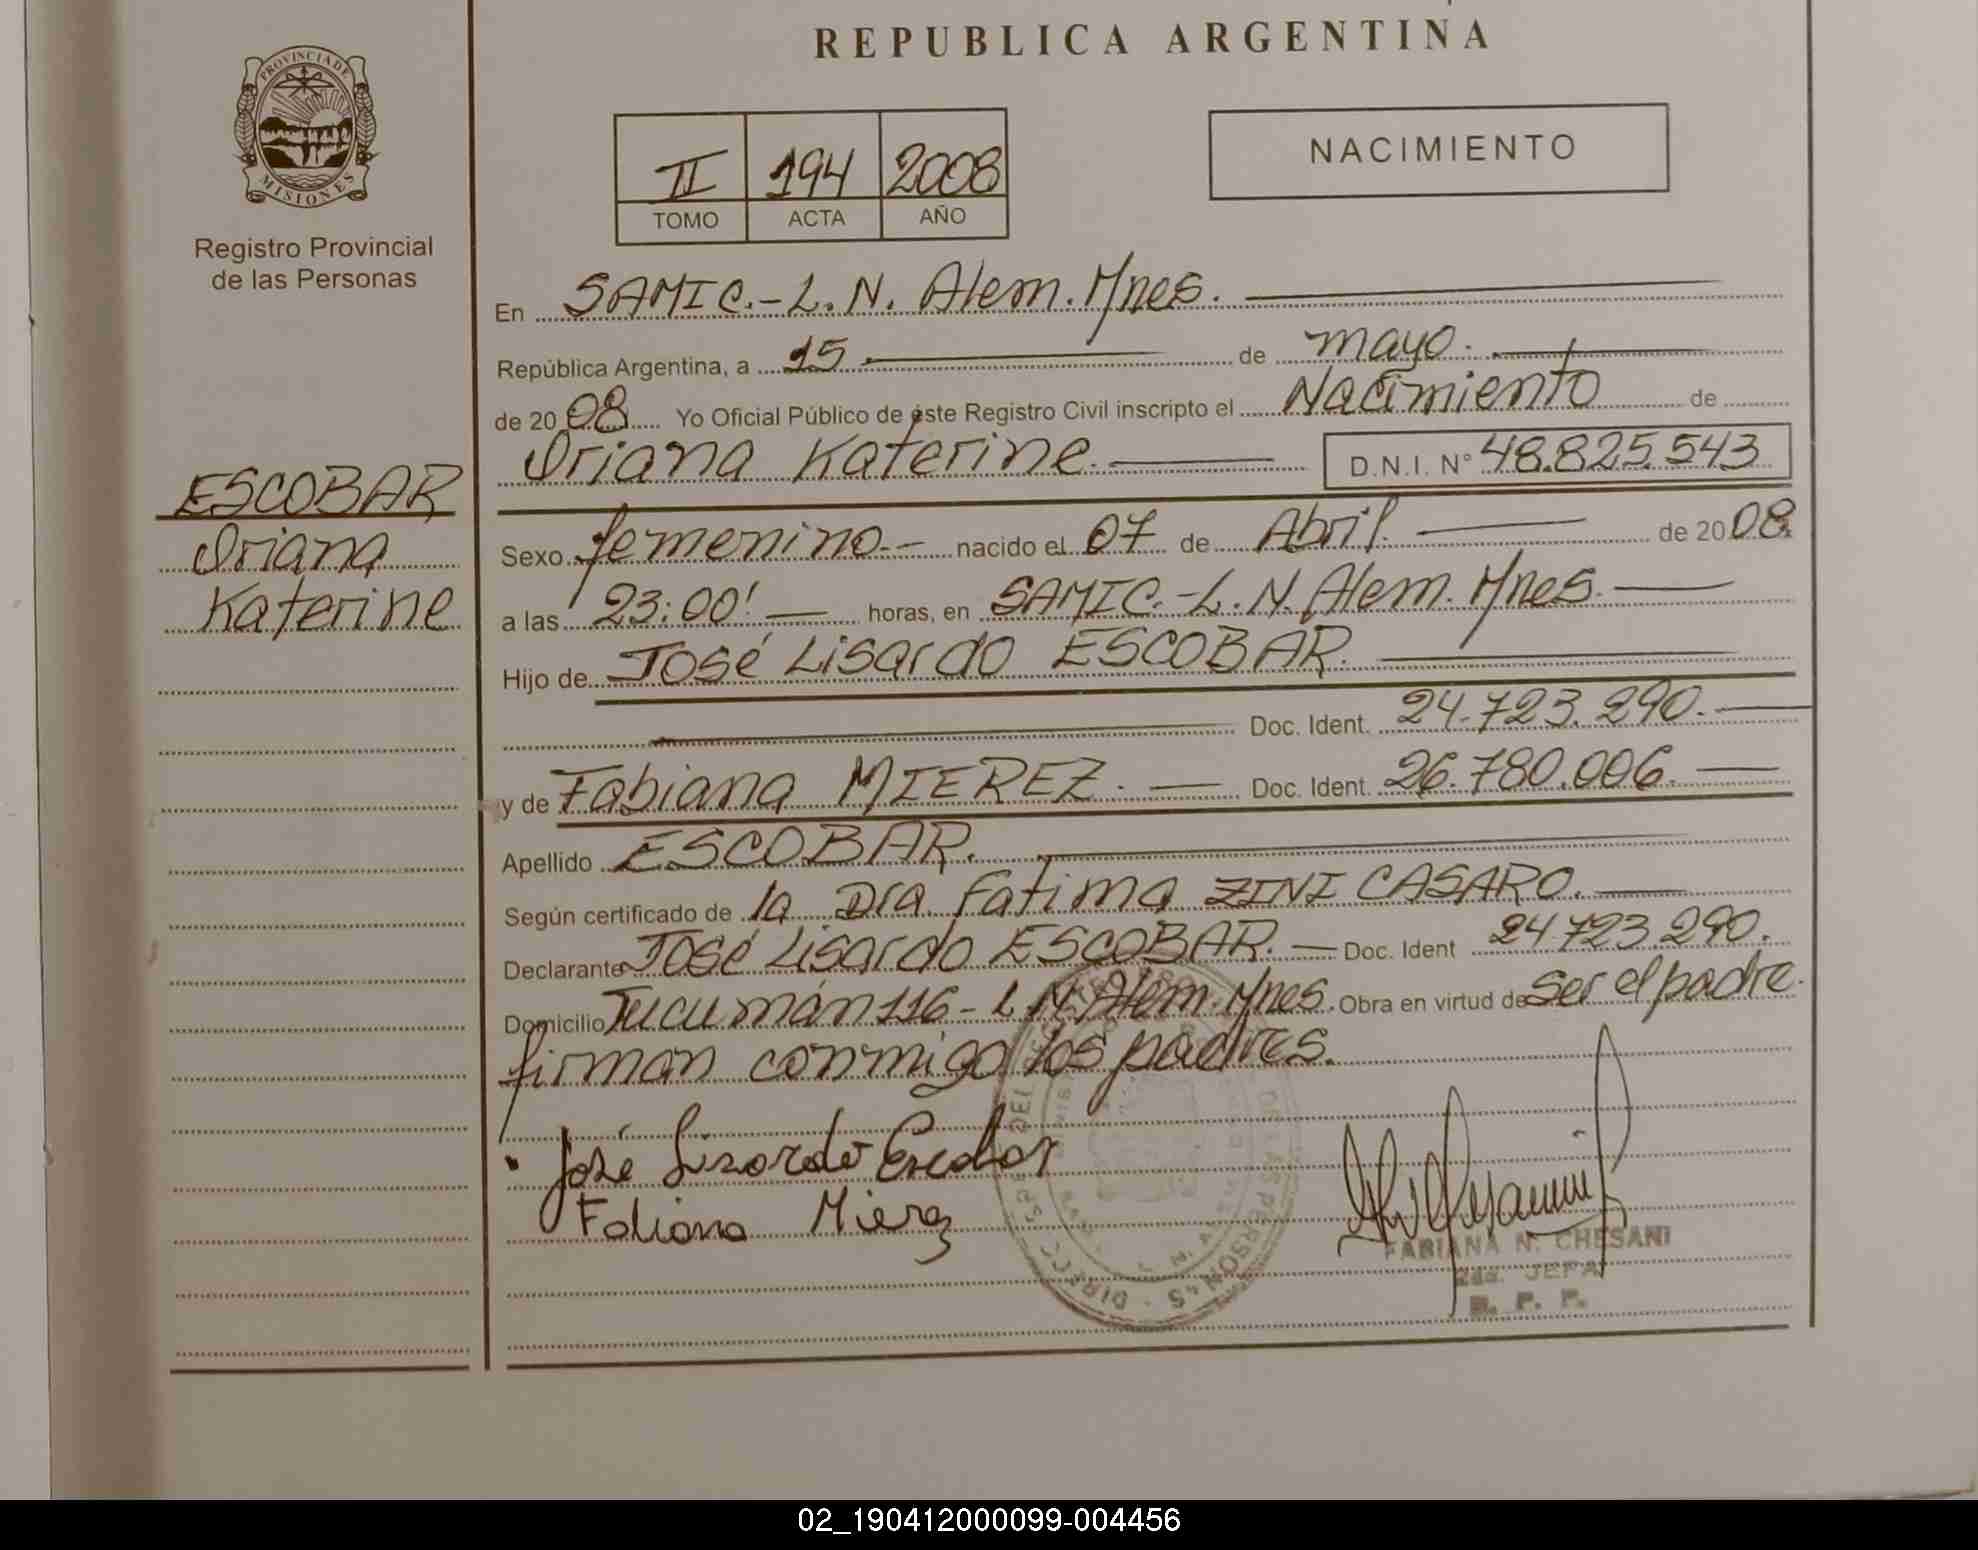 REPUBLICA ARGENTINA
PROVINCIA DE
MISIONES
Registro Provincial
de las Personas
II 194 2008
TOMO ACTA AÑO
NACIMIENTO
En SAMIC.-L.N. Alem. Mnes.
República Argentina, a 15 de mayo.
de 20 08 Yo Oficial Público de éste Registro Civil inscripto el Nacimiento de
Oriana Katerine. D.N.I. N° 48.825.543
ESCOBAR
Oriana
Katerine
Sexo femenino.- nacido el 07 de Abril. de 20 08.
a las 23:00' horas, en SAMIC.-L.N. Alem. Mnes.
Hijo de José Lisardo ESCOBAR.
Doc. Ident. 24.723.290.
y de Fabiana MIEREZ. Doc. Ident. 26.780.006.
Apellido ESCOBAR.
Según certificado de la Dra Fatima ZINI CASARO.
Declarante José Lisardo ESCOBAR. Doc. Ident 24.723.290.
Domicilio Tucumán 116 - L.N. Alem. Mnes. Obra en virtud de ser el padre.
firman conmigo los padres.
José Lizardo Escobar
Fabiana Mierez
FABIANA N. CHESANI
2da. JEFA
R. P. P.
02_190412000099-004456